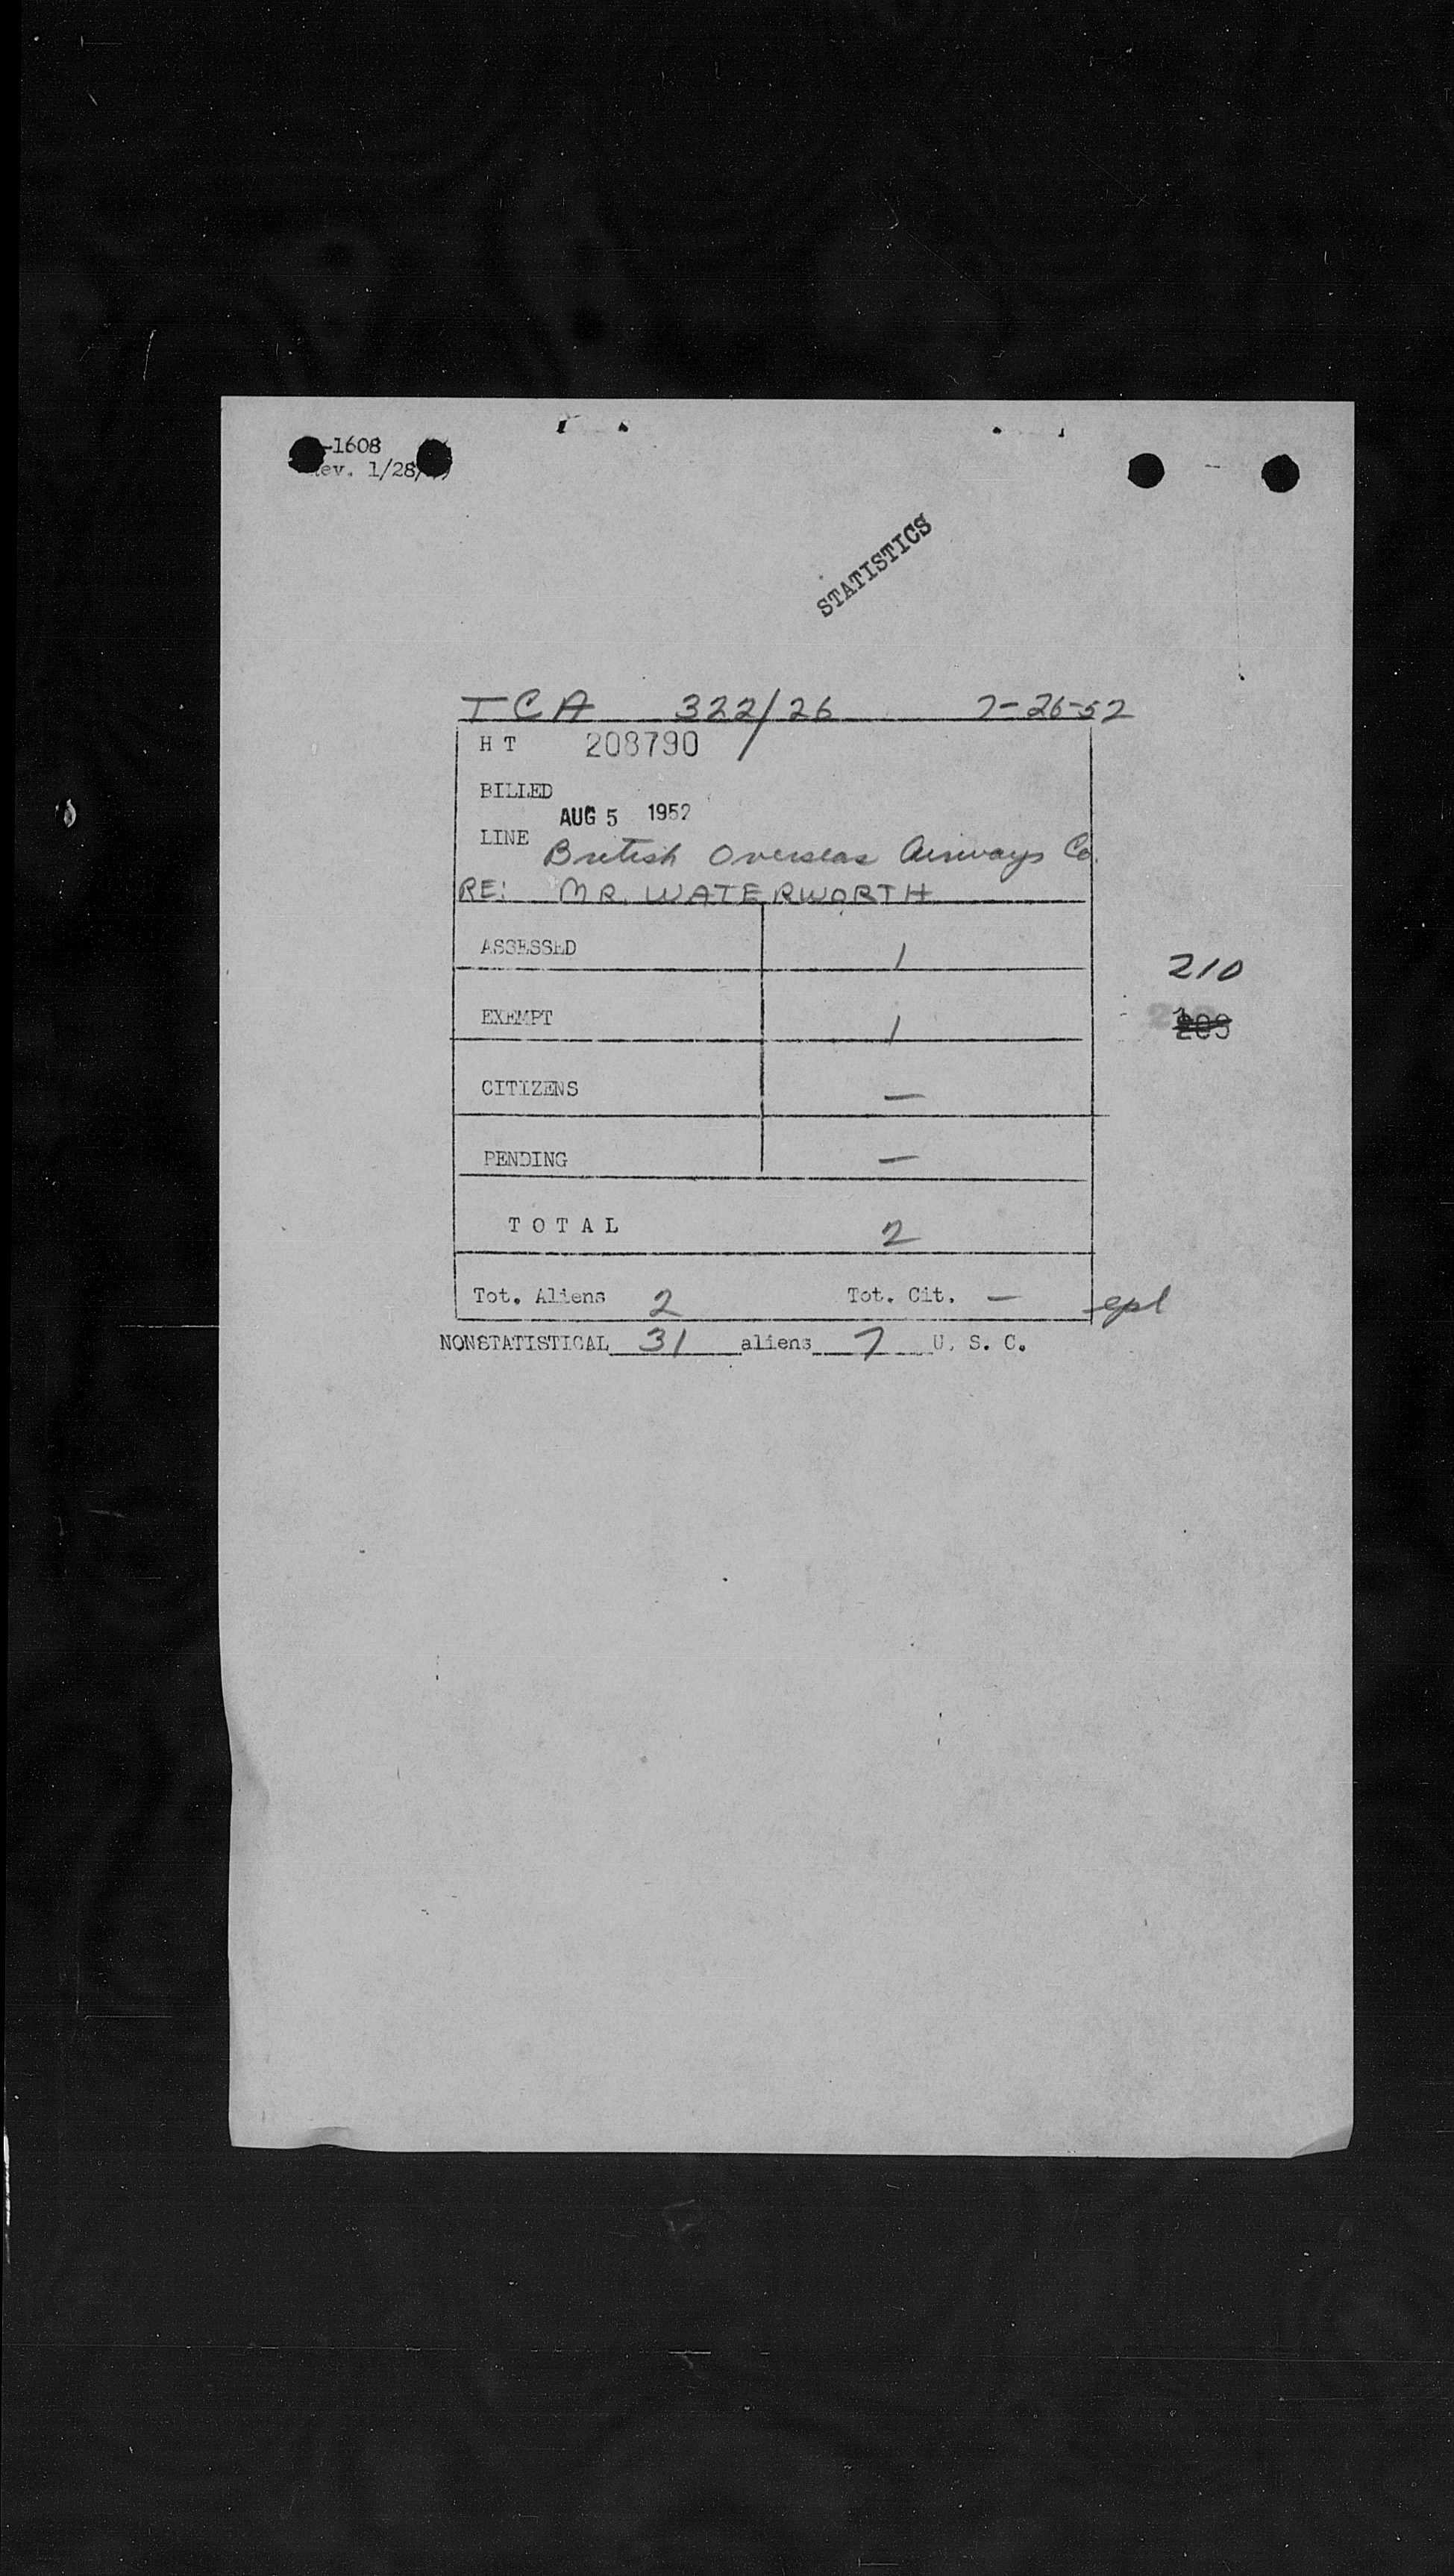 -1608
ev. 1/28/
STATISTICS
TCA 322/26 7-26-52
H T 208790
BILLED
AUG 5 1952
LINE British Overseas Airways Co.
RE: MR. WATERWORTH
ASSESSED 1
210
EXEMPT 1
CITIZENS —
PENDING —
T O T A L 2
Tot. Aliens 2 Tot. Cit. — epl
NONSTATISTICAL 31 aliens 7 U. S. C.